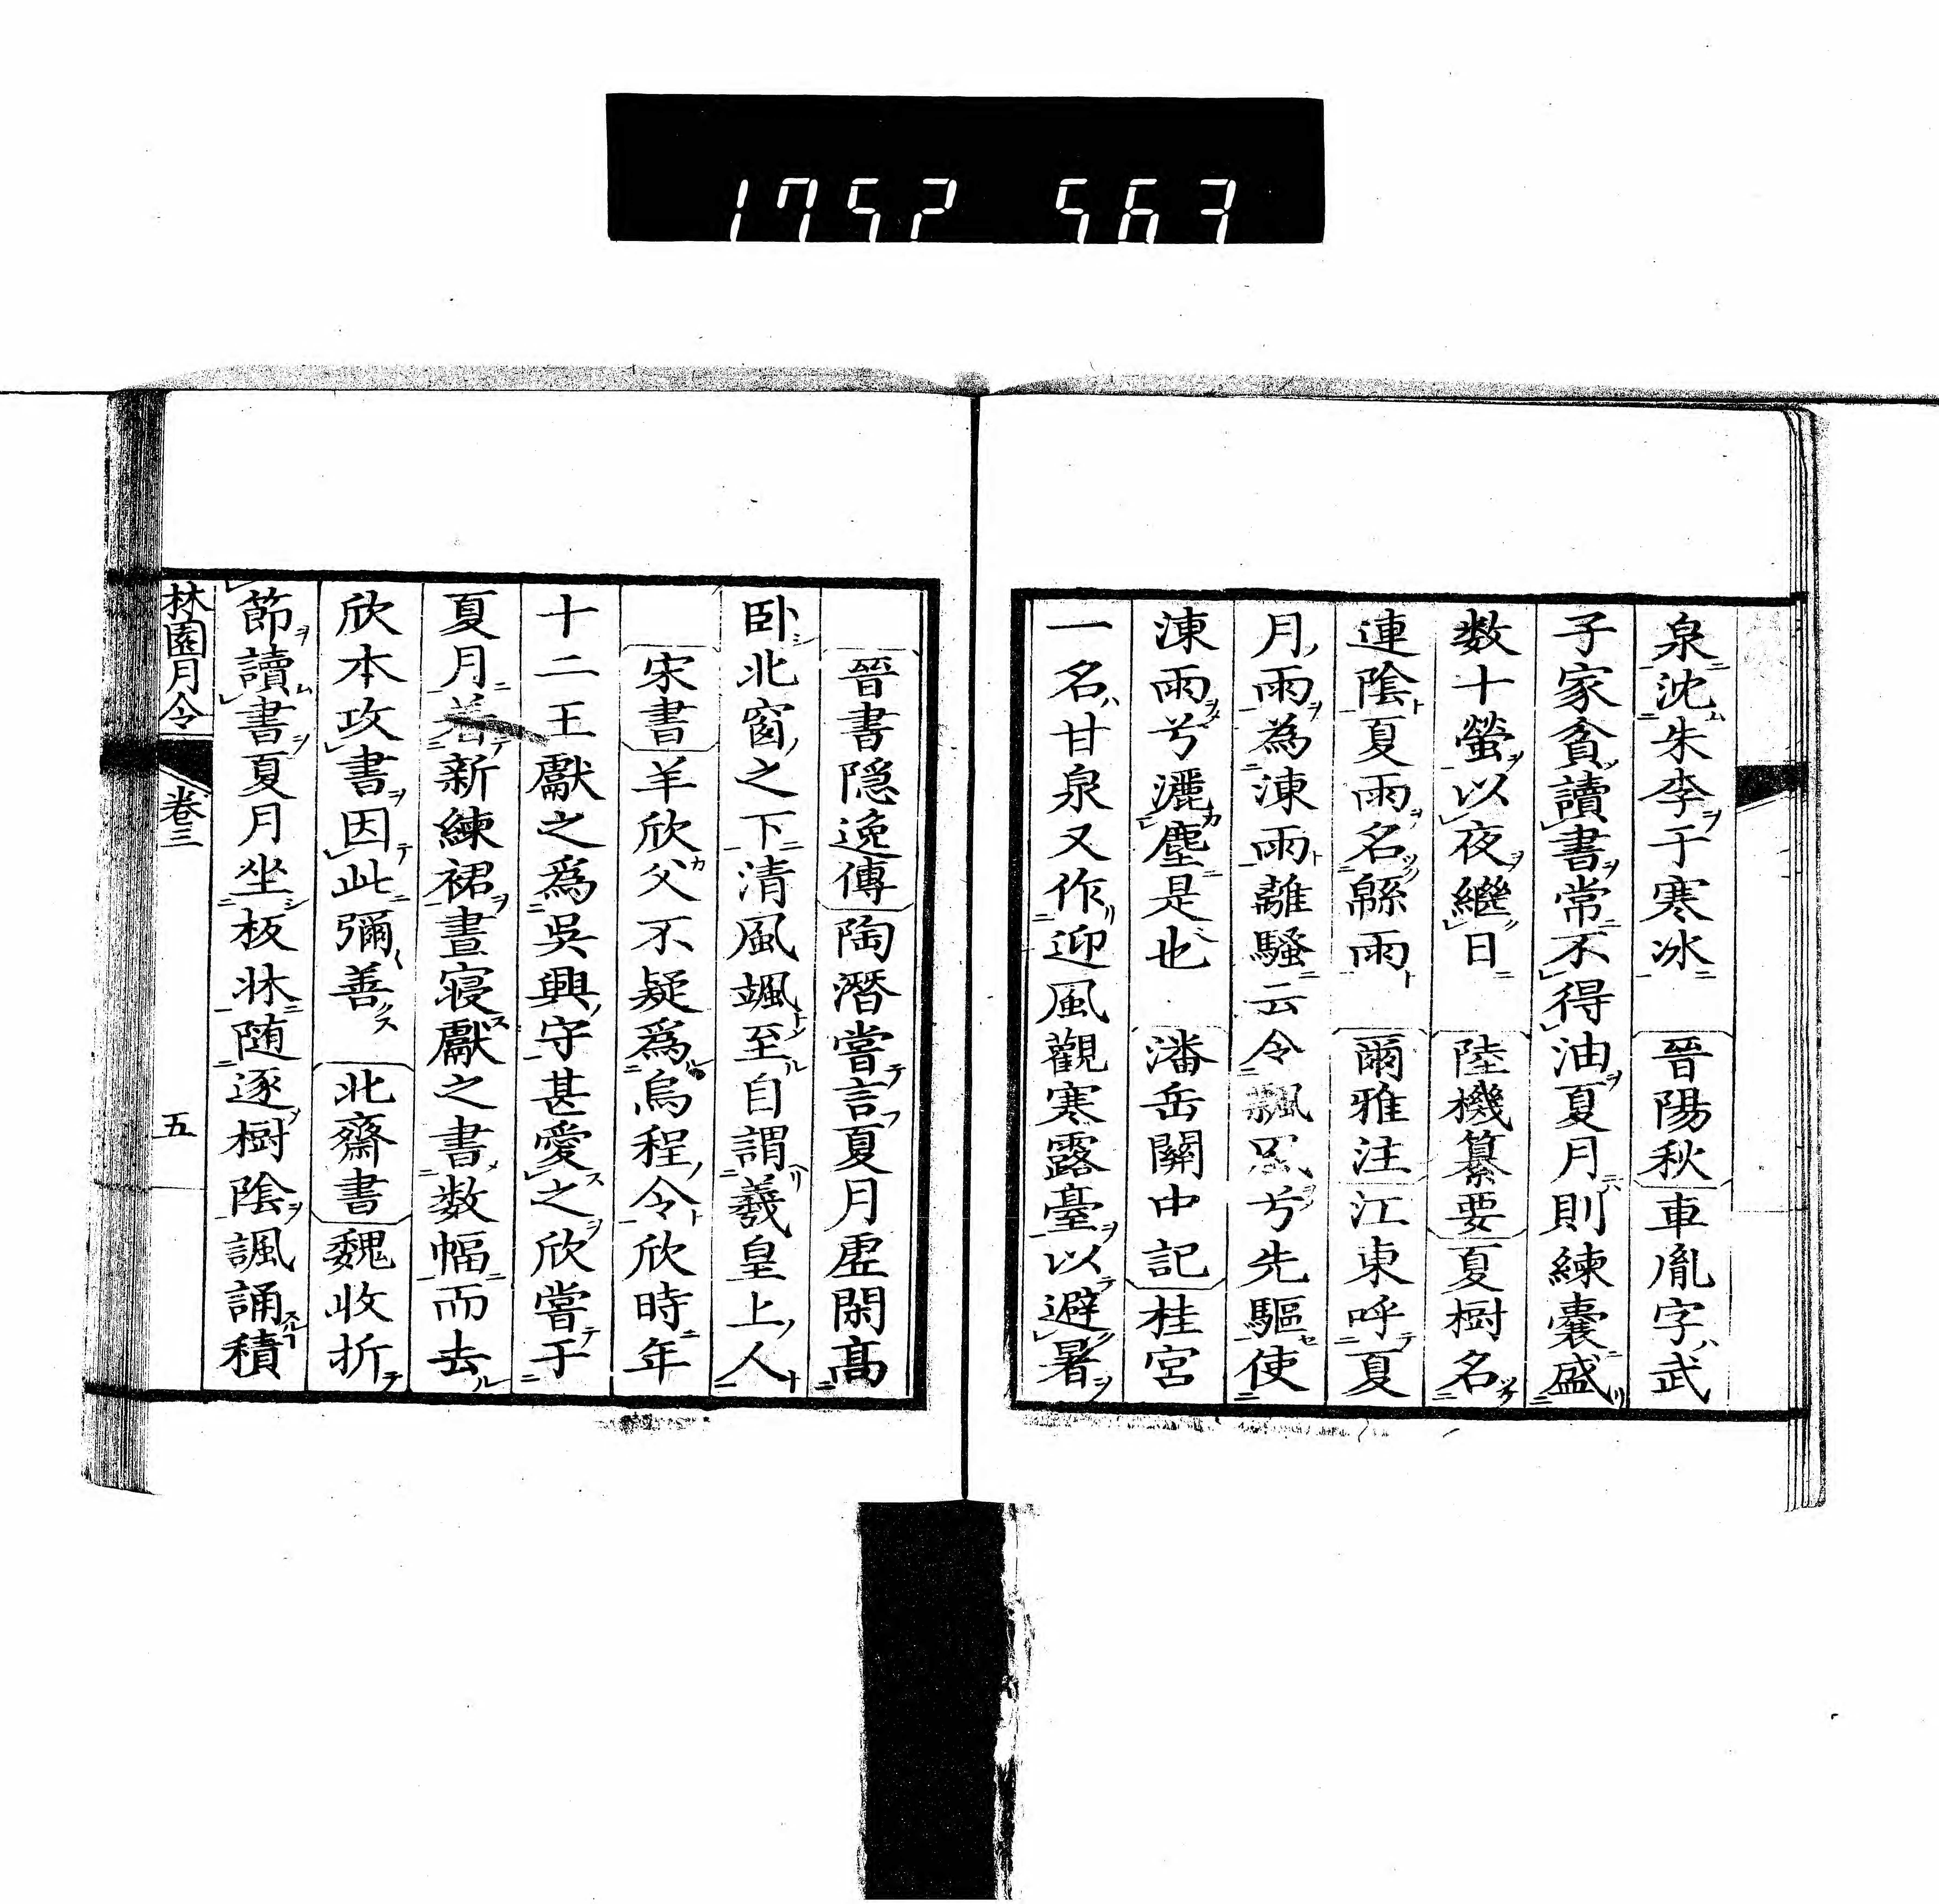 1752 563
泉沈朱李于寒冰 晉陽秋車胤字武
子家貧讀書常不得油夏月則練囊盛
数十螢以夜繼日 陸機纂要夏樹名
連陰夏雨名緜雨 爾雅注江東呼夏
月雨為涷雨離騷云令飄風兮先驅使
涷雨兮灑塵是也 潘岳關中記桂宮
一名甘泉又作迎風觀寒露臺以避暑
晉書隱逸傳陶潛嘗言夏月虛閑高
卧北窗之下清風颯至自謂羲皇上人
宋書羊欣父不疑爲烏程令欣時年
十二王獻之爲吳興守甚愛之欣嘗于
夏月着新練裙晝寢獻之書数幅而去
欣本攻書因此彌善 北齋書魏收折
節讀書夏月坐板牀随逐樹陰諷誦積
林園月令 卷三 五